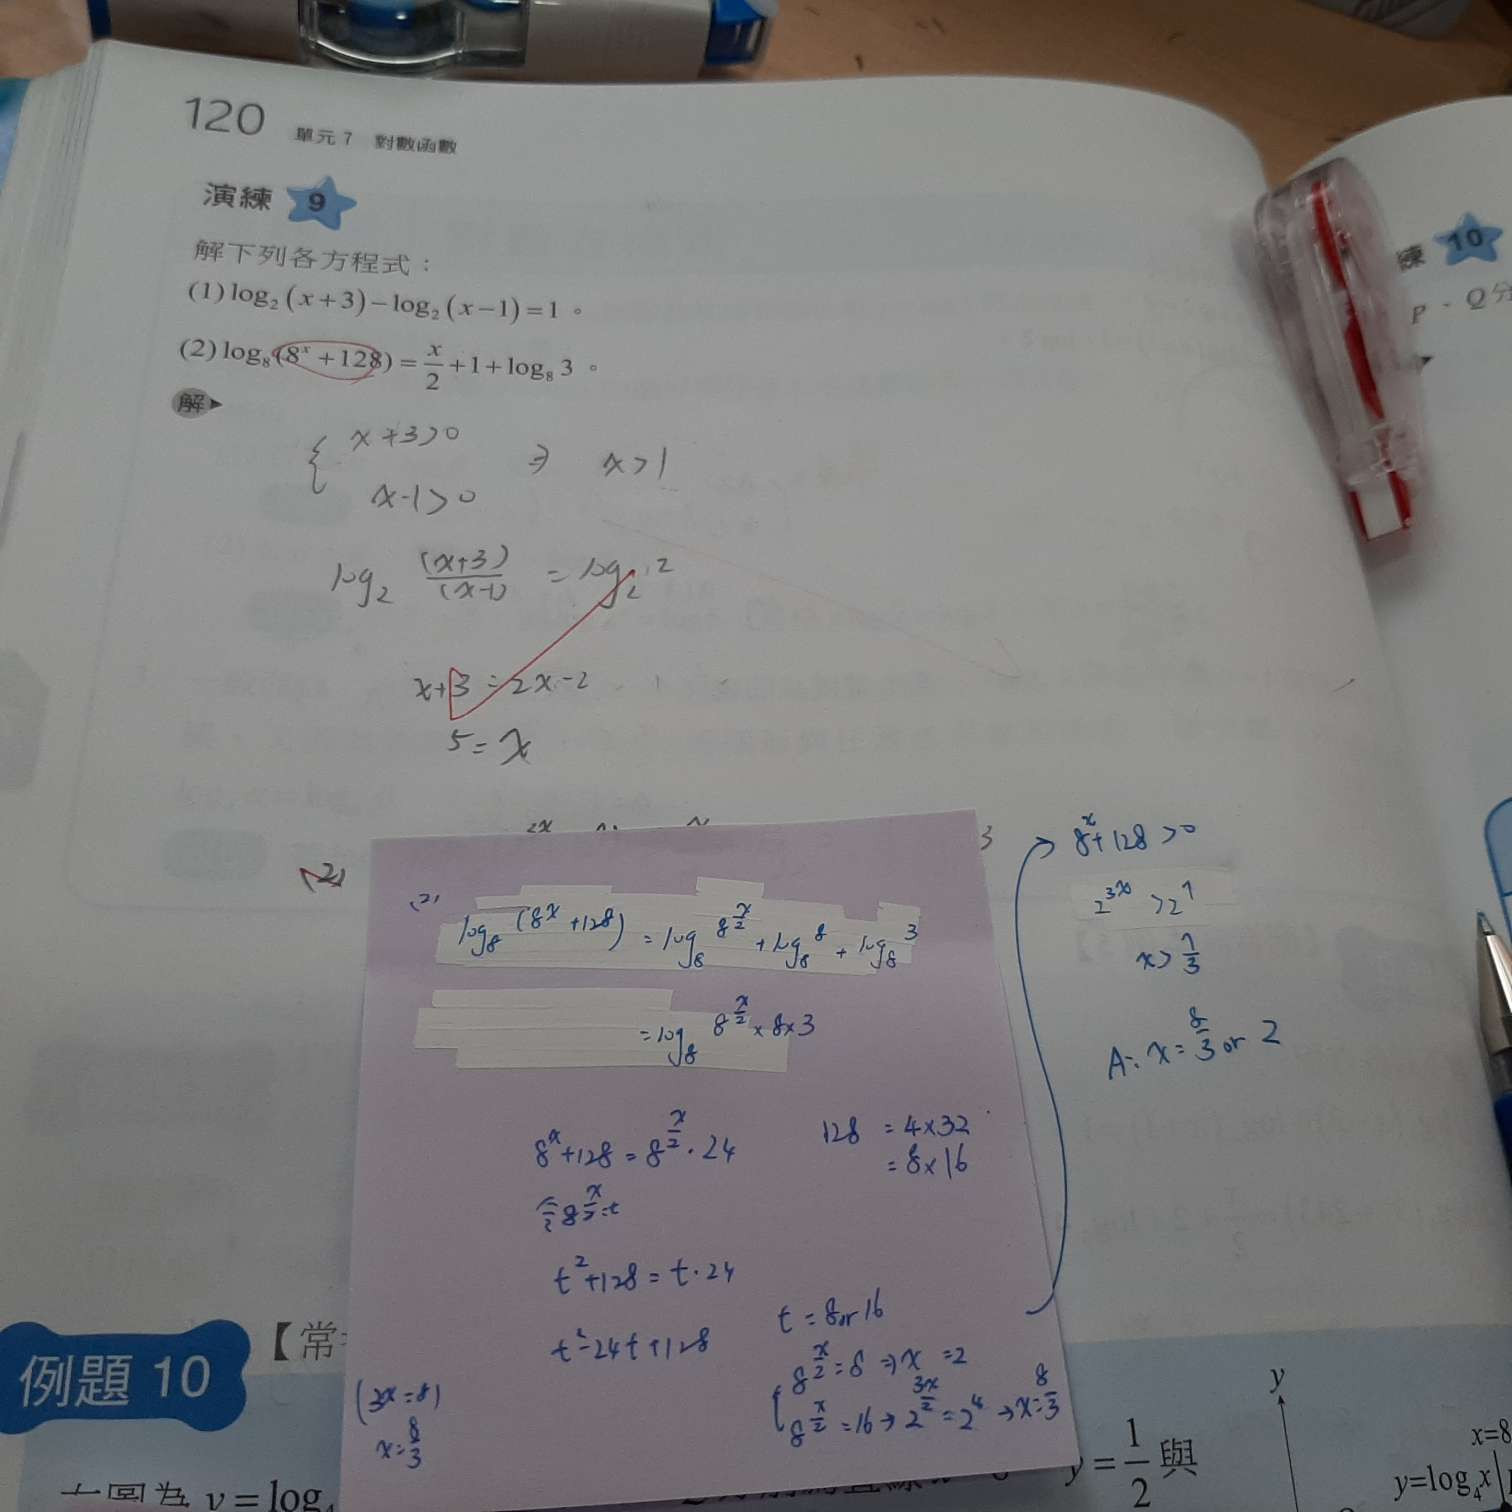 120 單元 7 對數函數
演練 9
解下列各方程式：
(1) log₂(x+3)−log₂(x−1)=1。
(2) log₈(8ˣ+128)=x/2+1+log₈3。
解▶
{ x+3>0
x-1>0 ⇒ x>1
log₂ (x+3)/(x-1) = log₂ 2
x+3=2x-2
5=x
(2)
3
(2)
log₈(8ˣ+128) = log₈ 8^(x/2) + log₈ 8 + log₈ 3
= log₈ 8^(x/2) × 8×3
8ˣ+128 = 8^(x/2) · 24
128 = 4×32
= 8×16
令 8^(x/2) = t
t²+128 = t·24
t²-24t+128
t = 8 or 16
{ 8^(x/2) = 8 ⇒ x = 2
8^(x/2) = 16 → 2^(3x/2) = 2⁴ → x = 8/3
(3x=8)
x = 8/3
→ 8ˣ+128>0
2^(3x) > 2⁷
x > 7/3
A: x = 8/3 or 2
例題 10
【常
y=log₄
y=1/2 與
y
x=8
y=log₄x
練 10
P、Q分